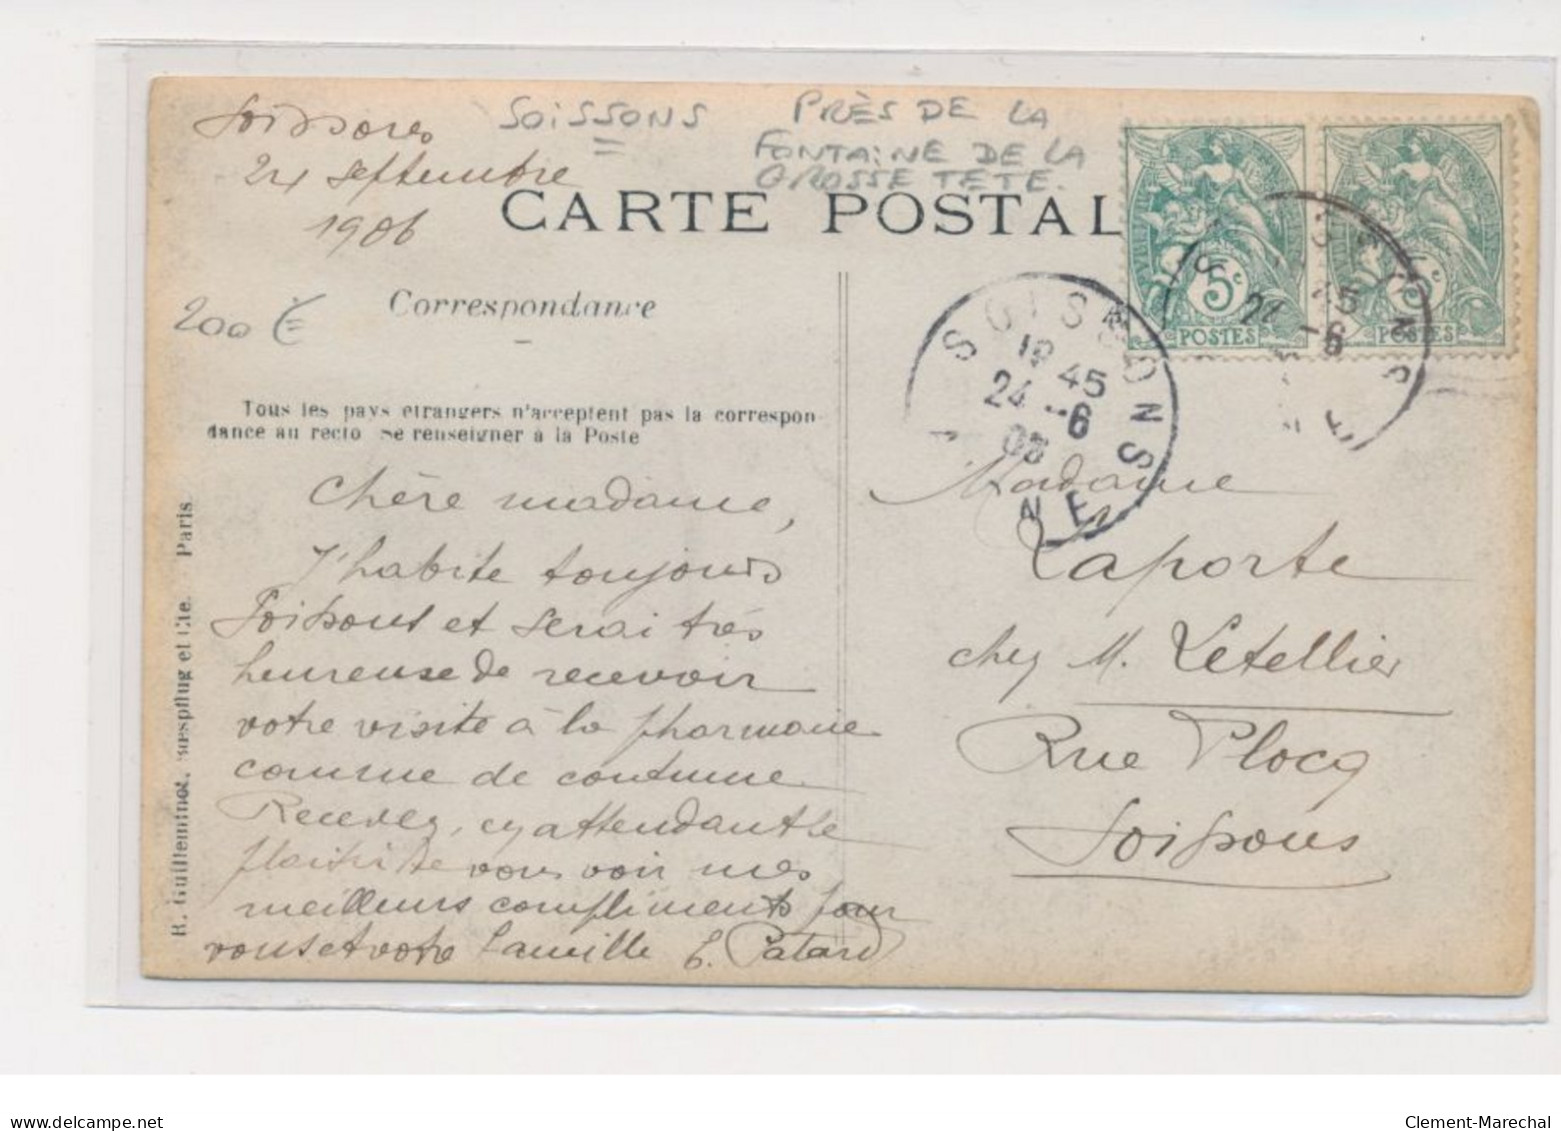 Soissons
24 septembre
1906
SOISSONS
PRÈS DE LA
FONTAINE DE LA
GROSSE TETE.
CARTE POSTAL
200 €
Correspondance
Tous les pays étrangers n'acceptent pas la correspon-
dance au recto Se renseigner à la Poste
5c
POSTES
5c
POSTES
SOISSONS
18 45
24 -6
NE
SOISSONS
24 -6
45
Chère madame,
J'habite toujours
Soissons et serai très
heureuse de recevoir
votre visite à la pharmacie
comme de coutume
Recevez, en attendant le
plaisir de vous voir mes
meilleurs compliments pour
vous et votre famille
Patard
Madame
Laporte
chez M. Letellier
Rue Plocq
Soissons
R. Guilleminot, Bœspflug et Cie. Paris
www.delcampe.net
Clement-Marechal